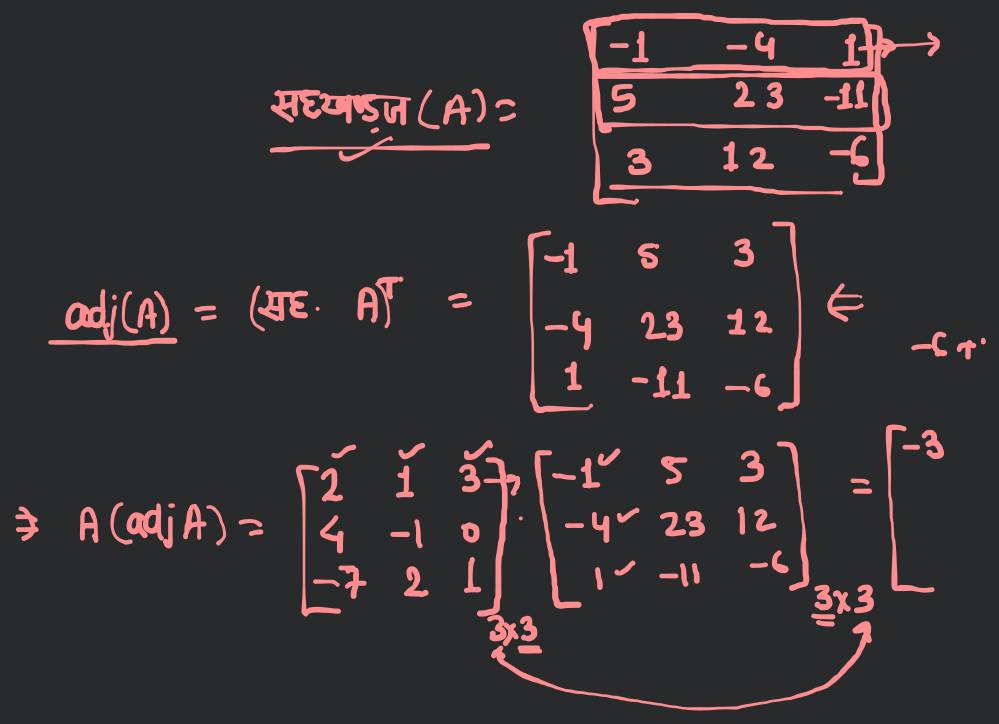 सहखण्डज (A) = [ -1 -4 1
5 23 -11
3 12 -6 ] →
adj(A) = (सह. A)ᵀ = [ -1 5 3
-4 23 12
1 -11 -6 ] ⇐
-6 +
⇒ A(adj A) = [ 2 1 3 · [ -1 5 3 = [ -3
4 -1 0 -4 23 12
-7 2 1 ] 1 -11 -6 ]
3×3 3×3